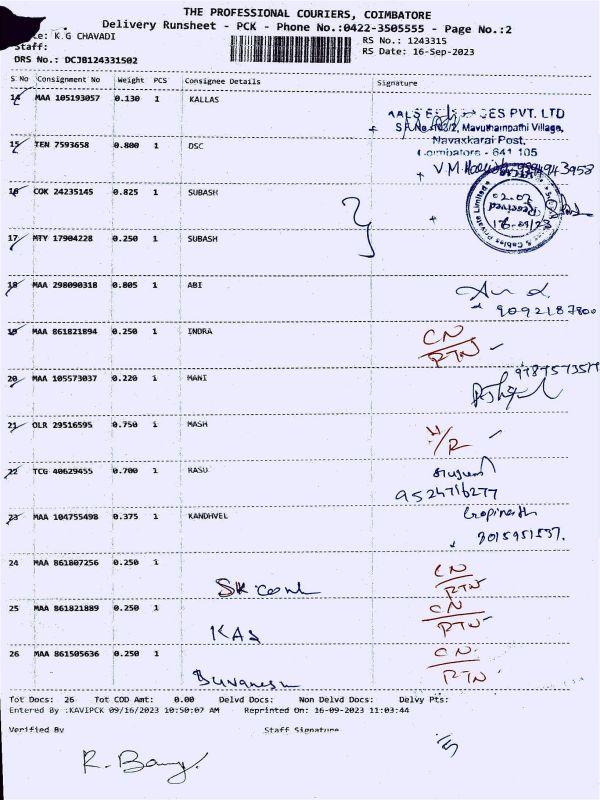 THE PROFESSIONAL COURIERS, COIMBATORE
Delivery Runsheet - PCK - Phone No.:0422-3505555 - Page No.:2
K.G CHAVADI
RS No.: 1243315
Staff:
RS Date: 16-Sep-2023
DRS No.: DCJB124331502
S No Consignment No Weight PCS Consignee Details Signature
14 MAA 105193057 0.130 1 KALLAS
PVT. LTD
Mavuthampathi Village,
Navakkarai Post,
15 TEN 7593658 0.800 1 DSC
Coimbatore - 641 105
16 COK 24235145 0.825 1 SUBASH
Received
17 MTY 17904228 0.250 1 SUBASH
18 MAA 298090318 0.805 1 ABI
9092187800
19 MAA 861821894 0.250 1 INDRA CN
RTN
20 MAA 105573037 0.220 1 MANI
21 OLR 29516595 0.750 1 MASH
22 TCG 40629455 0.700 1 RASU
9524716277
23 MAA 104755498 0.375 1 KANDHVEL Gopinath
24 MAA 861807256 0.250 1 CN
RTN
25 MAA 861821889 0.250 1 CN
KAS RTN
26 MAA 861505636 0.250 1 CN
RTN
Tot Docs: 26 Tot COD Amt: 0.00 Delvd Docs: Non Delvd Docs: Delvy Pts:
Entered By :KAVIPCK 09/16/2023 10:50:07 AM Reprinted On: 16-09-2023 11:03:44
Verified By Staff Signature